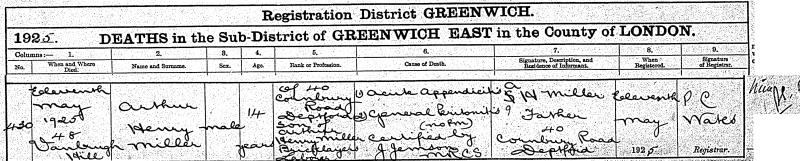 Registration District GREENWICH.
1925. DEATHS in the Sub-District of GREENWICH EAST in the County of LONDON.
Columns:— 1. 2. 3. 4. 5. 6. 7. 8. 9.
No. When and Where Died. Name and Surname. Sex. Age. Rank or Profession. Cause of Death. Signature, Description, and Residence of Informant. When Registered. Signature of Registrar.
430
Eleventh
May
1925
48
Vanbrugh
Hill
Arthur
Henry
Miller
male
14
years
of 40
Road
Deptford
Son of
Arthur
Henry Miller
Bricklayers
(1) Acute Appendicitis
(2) General Peritonitis
(no P.M.)
certified by
J. Jemson
MRCS
A H Miller
Father
40
Road
Deptford
Eleventh
May
1925
P C
Registrar.